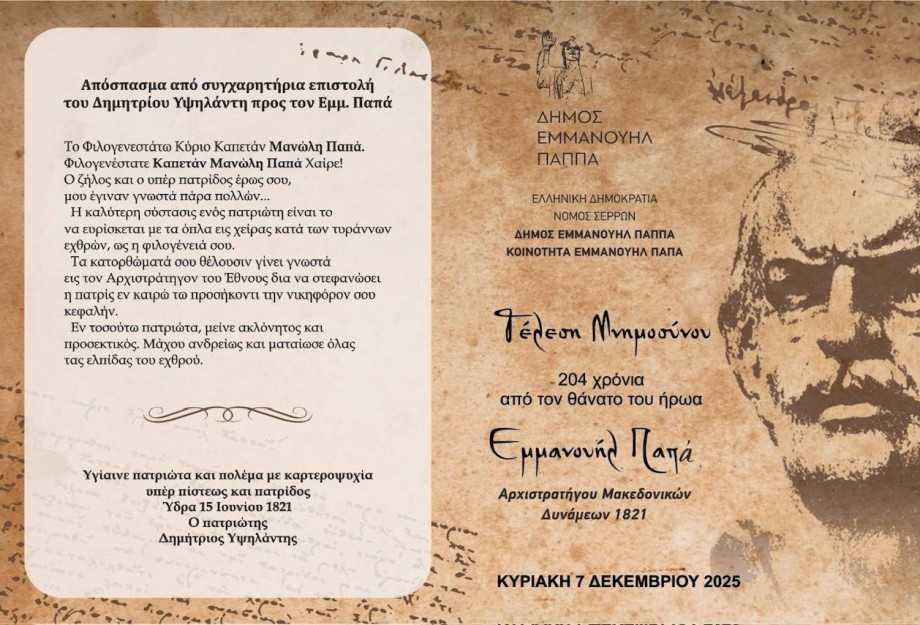 Απόσπασμα από συγχαρητήρια επιστολή
του Δημητρίου Υψηλάντη προς τον Εμμ. Παπά
Το Φιλογενεστάτω Κύριο Καπετάν Μανώλη Παπά.
Φιλογενέστατε Καπετάν Μανώλη Παπά Χαίρε!
Ο ζήλος και ο υπέρ πατρίδος έρως σου,
μου έγιναν γνωστά πάρα πολλών...
Η καλύτερη σύστασις ενός πατριώτη είναι το
να ευρίσκεται με τα όπλα εις χείρας κατά των τυράννων
εχθρών, ως η φιλογένειά σου.
Τα κατορθώματά σου θέλουσιν γίνει γνωστά
εις τον Αρχιστράτηγον του Έθνους δια να στεφανώσει
η πατρίς εν καιρώ τω προσήκοντι την νικηφόρον σου
κεφαλήν.
Εν τοσούτω πατριώτα, μείνε ακλόνητος και
προσεκτικός. Μάχου ανδρείως και ματαίωσε όλας
τας ελπίδας του εχθρού.
Υγίαινε πατριώτα και πολέμα με καρτεροψυχία
υπέρ πίστεως και πατρίδος
Ύδρα 15 Ιουνίου 1821
Ο πατριώτης
Δημήτριος Υψηλάντης
ΔΗΜΟΣ
ΕΜΜΑΝΟΥΗΛ
ΠΑΠΠΑ
ΕΛΛΗΝΙΚΗ ΔΗΜΟΚΡΑΤΙΑ
ΝΟΜΟΣ ΣΕΡΡΩΝ
ΔΗΜΟΣ ΕΜΜΑΝΟΥΗΛ ΠΑΠΠΑ
ΚΟΙΝΟΤΗΤΑ ΕΜΜΑΝΟΥΗΛ ΠΑΠΑ
Τέλεση Μνημοσύνου
204 χρόνια
από τον θάνατο του ήρωα
Εμμανουήλ Παπά
Αρχιστρατήγου Μακεδονικών
Δυνάμεων 1821
ΚΥΡΙΑΚΗ 7 ΔΕΚΕΜΒΡΙΟΥ 2025